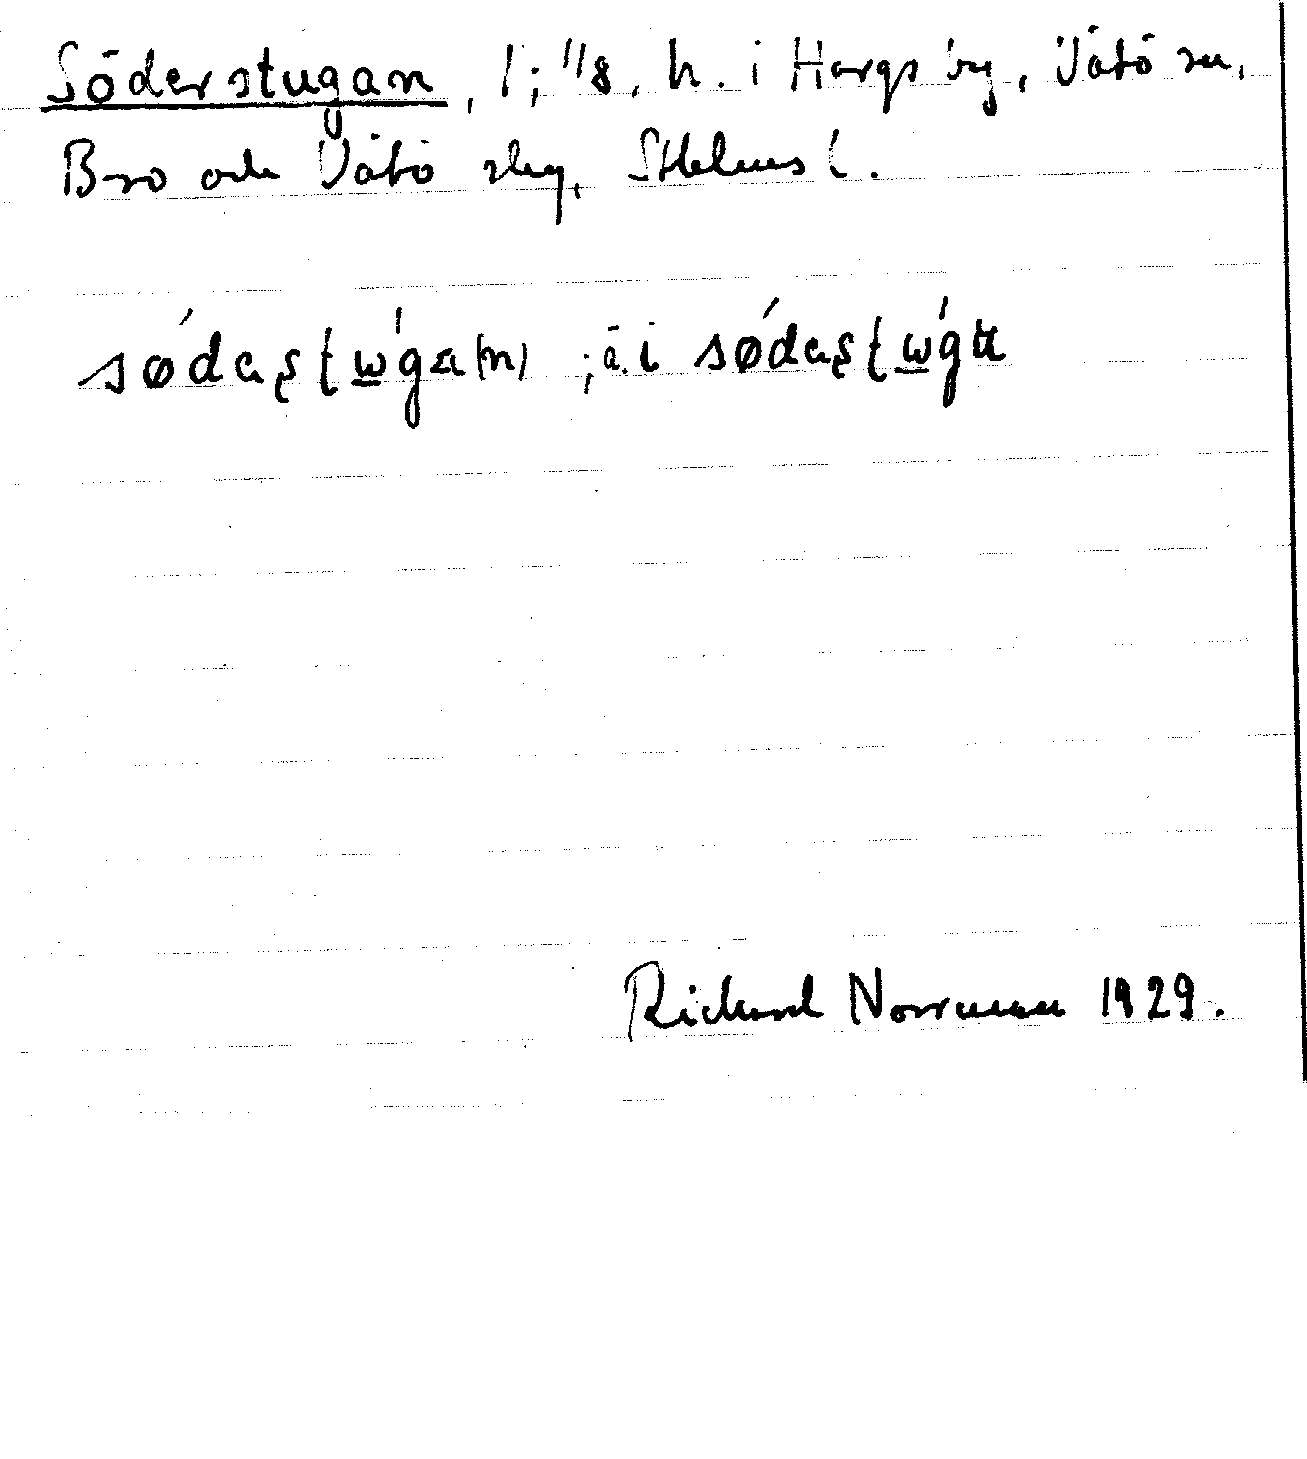 Söderstugan, 1; 11/8, h. i Hargs by, Vätö sn,
Bro och Vätö skg, Sthlms l.
sǿdaʂʈώ̲ga(n) ; ä. i sǿdaʂʈώ̲gu
Rickard Norrman 1929.